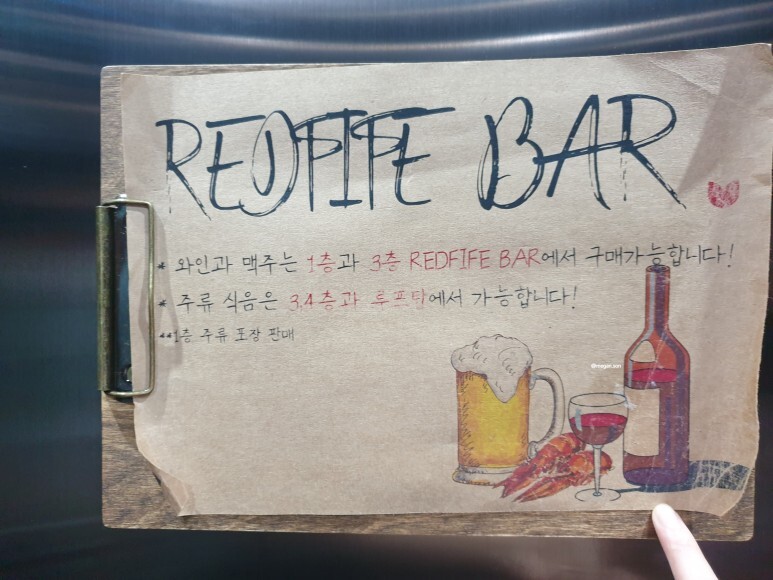 REDFIFE BAR
* 와인과 맥주는 1층과 3층 REDFIFE BAR에서 구매가능합니다!
* 주류 식음은 3,4층과 루프탑에서 가능합니다!
**1층 주류 포장 판매